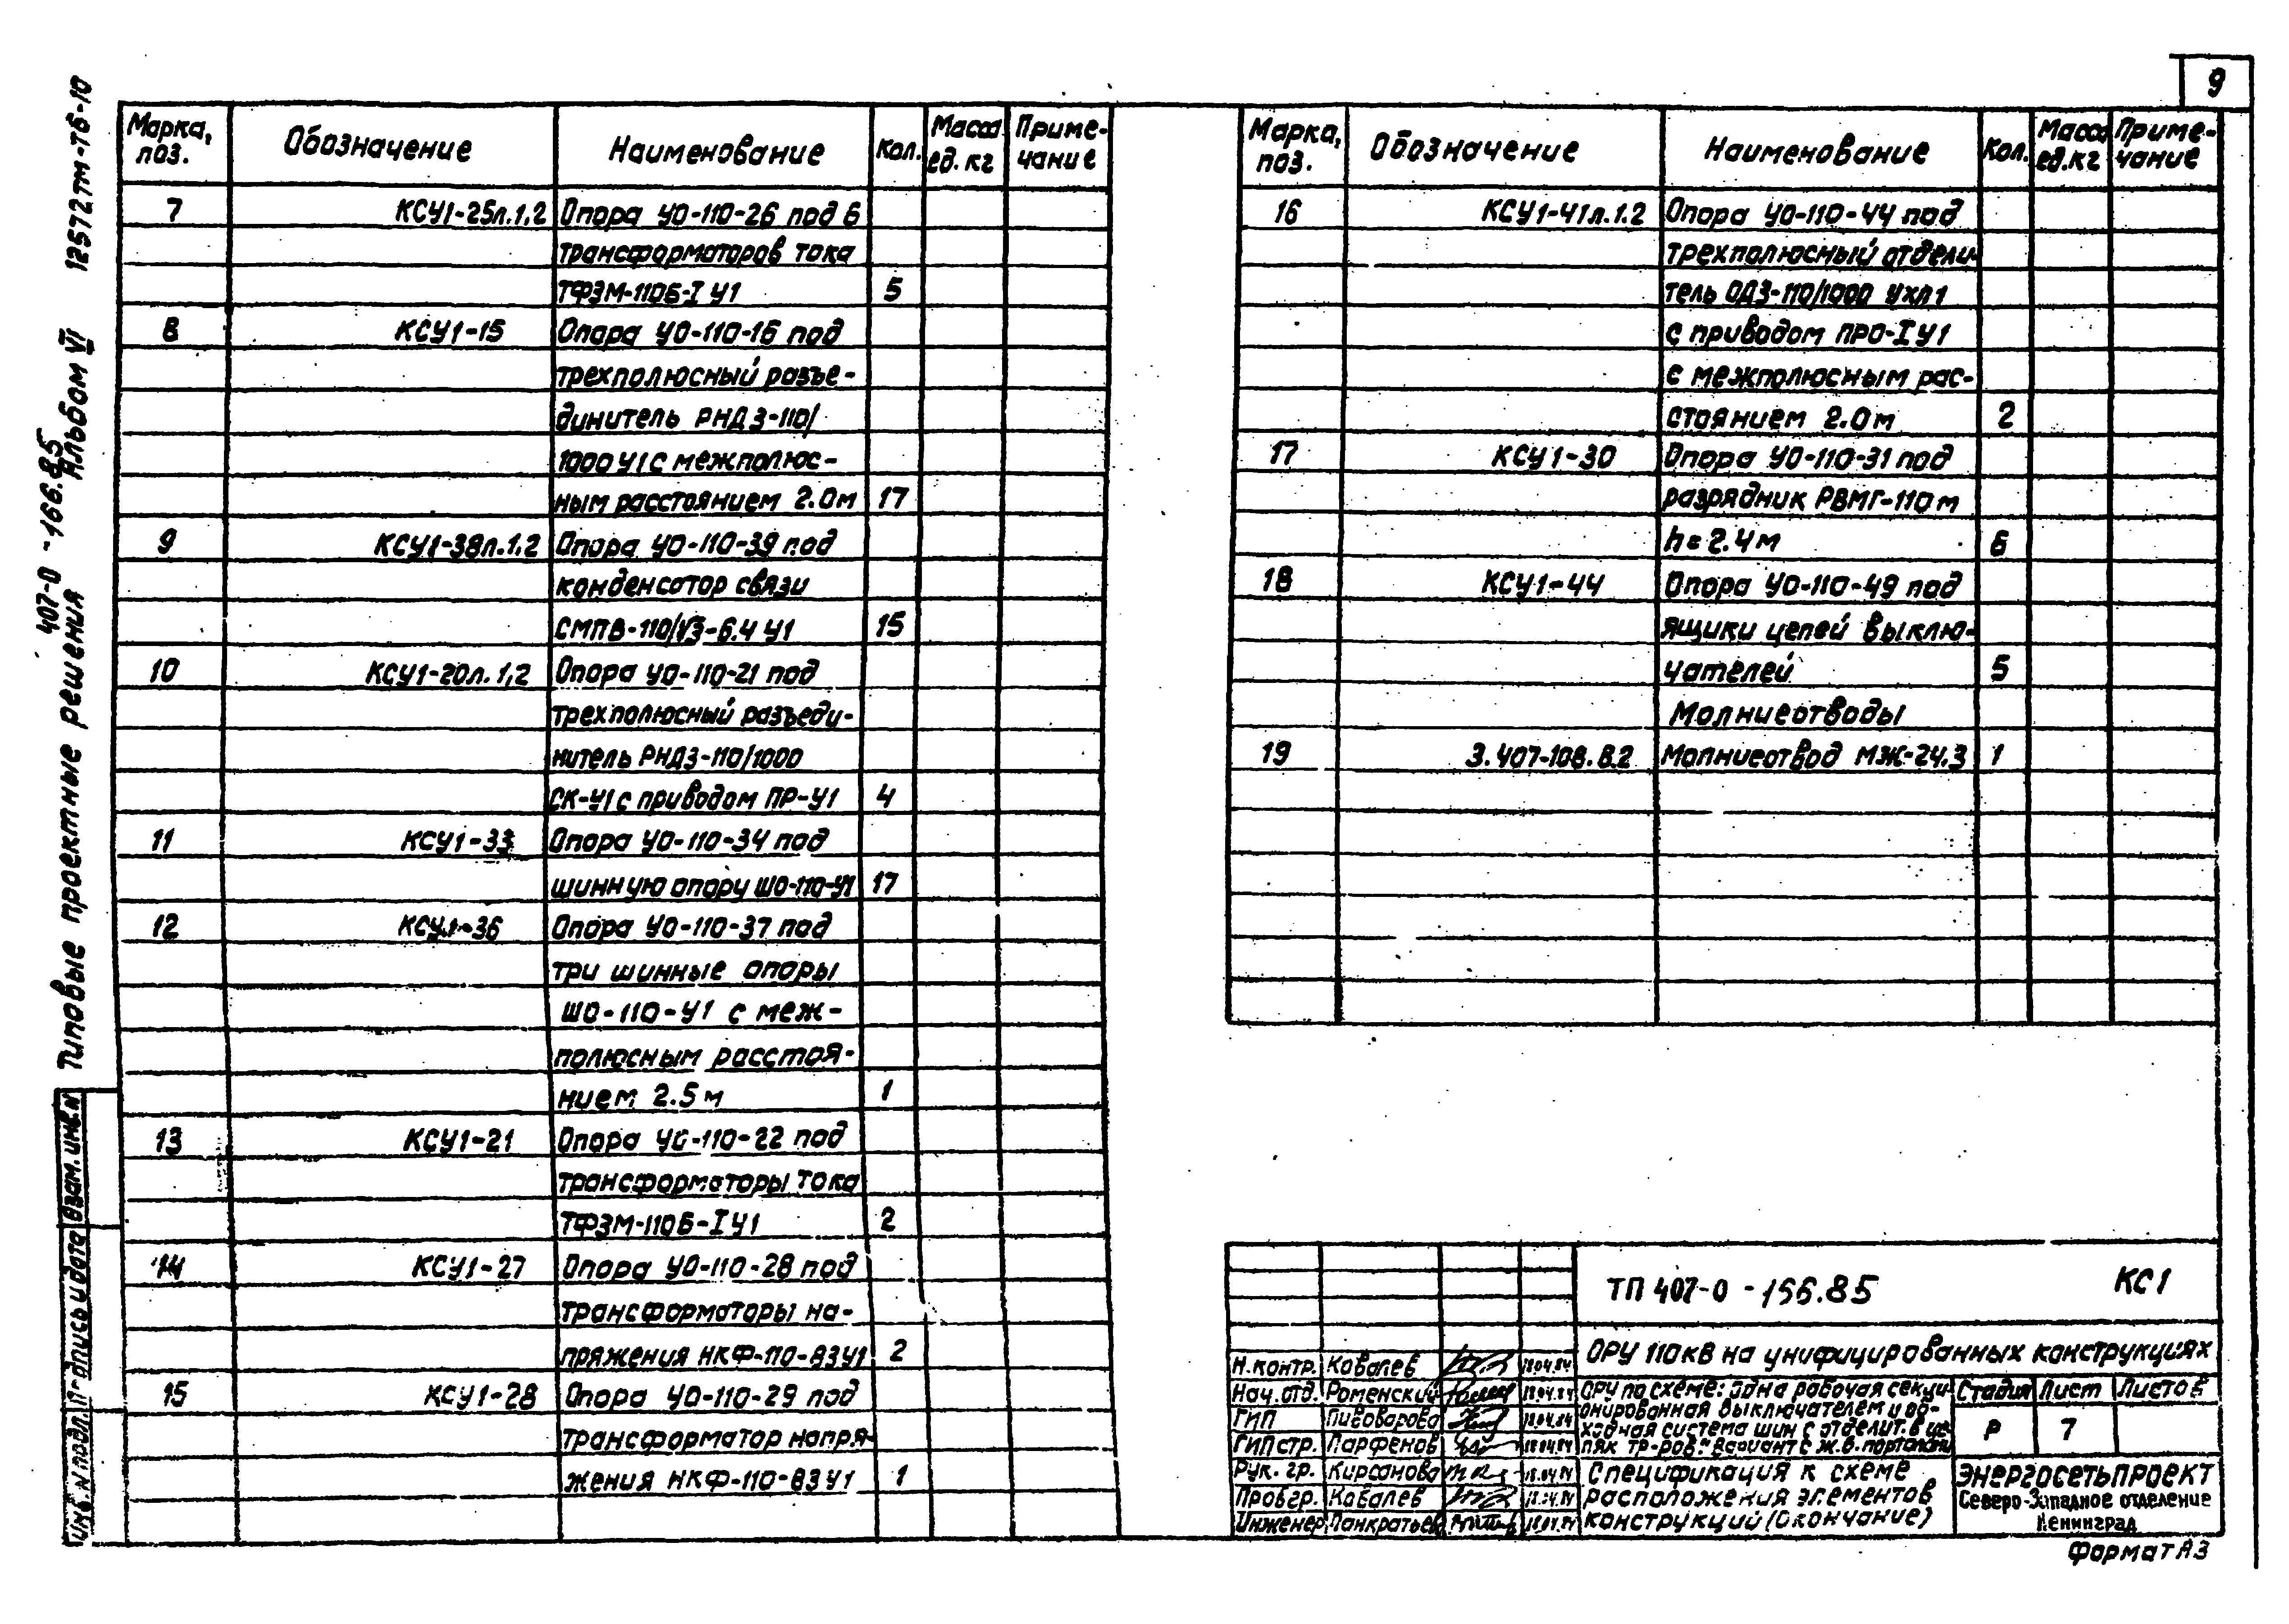 9
12572тм-т6-10
Альбом VI
407-0-166.85
Типовые проектные решения
Взам.инв.N
Подпись и дата
Инв. N подл.
Марка, поз. Обозначение Наименование Кол. Масса ед. кг Приме-чание
7 КСУ1-25л.1,2 Опора УО-110-26 под 6
трансформаторов тока
ТФЗМ-110Б-I У1 5
8 КСУ1-15 Опора УО-110-16 под
трехполюсный разъе-
динитель РНДЗ-110/
1000 У1 с межполюс-
ным расстоянием 2.0м 17
9 КСУ1-38л.1,2 Опора УО-110-39 под
конденсатор связи
СМПВ-110/√3-6.4 У1 15
10 КСУ1-20л.1,2 Опора УО-110-21 под
трехполюсный разъеди-
нитель РНДЗ-110/1000
СК-У1 с приводом ПР-У1 4
11 КСУ1-33 Опора УО-110-34 под
шинную опору ШО-110-У1 17
12 КСУ1-36 Опора УО-110-37 под
три шинные опоры
ШО-110-У1 с меж-
полюсным расстоя-
нием 2.5м 1
13 КСУ1-21 Опора УО-110-22 под
трансформаторы тока
ТФЗМ-110Б-I У1 2
14 КСУ1-27 Опора УО-110-28 под
трансформаторы на-
пряжения НКФ-110-83У1 2
15 КСУ1-28 Опора УО-110-29 под
трансформатор напря-
жения НКФ-110-83У1 1
Марка, поз. Обозначение Наименование Кол. Масса ед.кг Приме-чание
16 КСУ1-41л.1.2 Опора УО-110-44 под
трехполюсный отдели-
тель ОДЗ-110/1000 УХЛ1
с приводом ПРО-I У1
с межполюсным рас-
стоянием 2.0м 2
17 КСУ1-30 Опора УО-110-31 под
разрядник РВМГ-110м
h=2.4м 6
18 КСУ1-44 Опора УО-110-49 под
ящики цепей выклю-
чателей 5
Молниеотводы
19 3.407-108.В.2 Молниеотвод МЖ-24.3 1
ТП 407-0-166.85 КС1
ОРУ 110кВ на унифицированных конструкциях
Н.контр. Ковалев 18.04.84
Нач.отд. Роменский 18.04.84
ГИП Пивоварова 18.04.84
ГИП стр. Парфенов 18.04.84
Рук. гр. Кирсанова 18.04.84
Пров гр. Ковалев 18.04.84
Инженер Панкратьев 18.04.84
ОРУ по схеме: одна рабочая секци-
онированная выключателем и об-
ходная система шин с отделит. в це-
пях тр-ров". Вариант с ж.б. порталами
Стадия Лист Листов
Р 7
Спецификация к схеме
расположения элементов
конструкций (Окончание)
ЭНЕРГОСЕТЬПРОЕКТ
Северо-Западное отделение
Ленинград
Формат А3